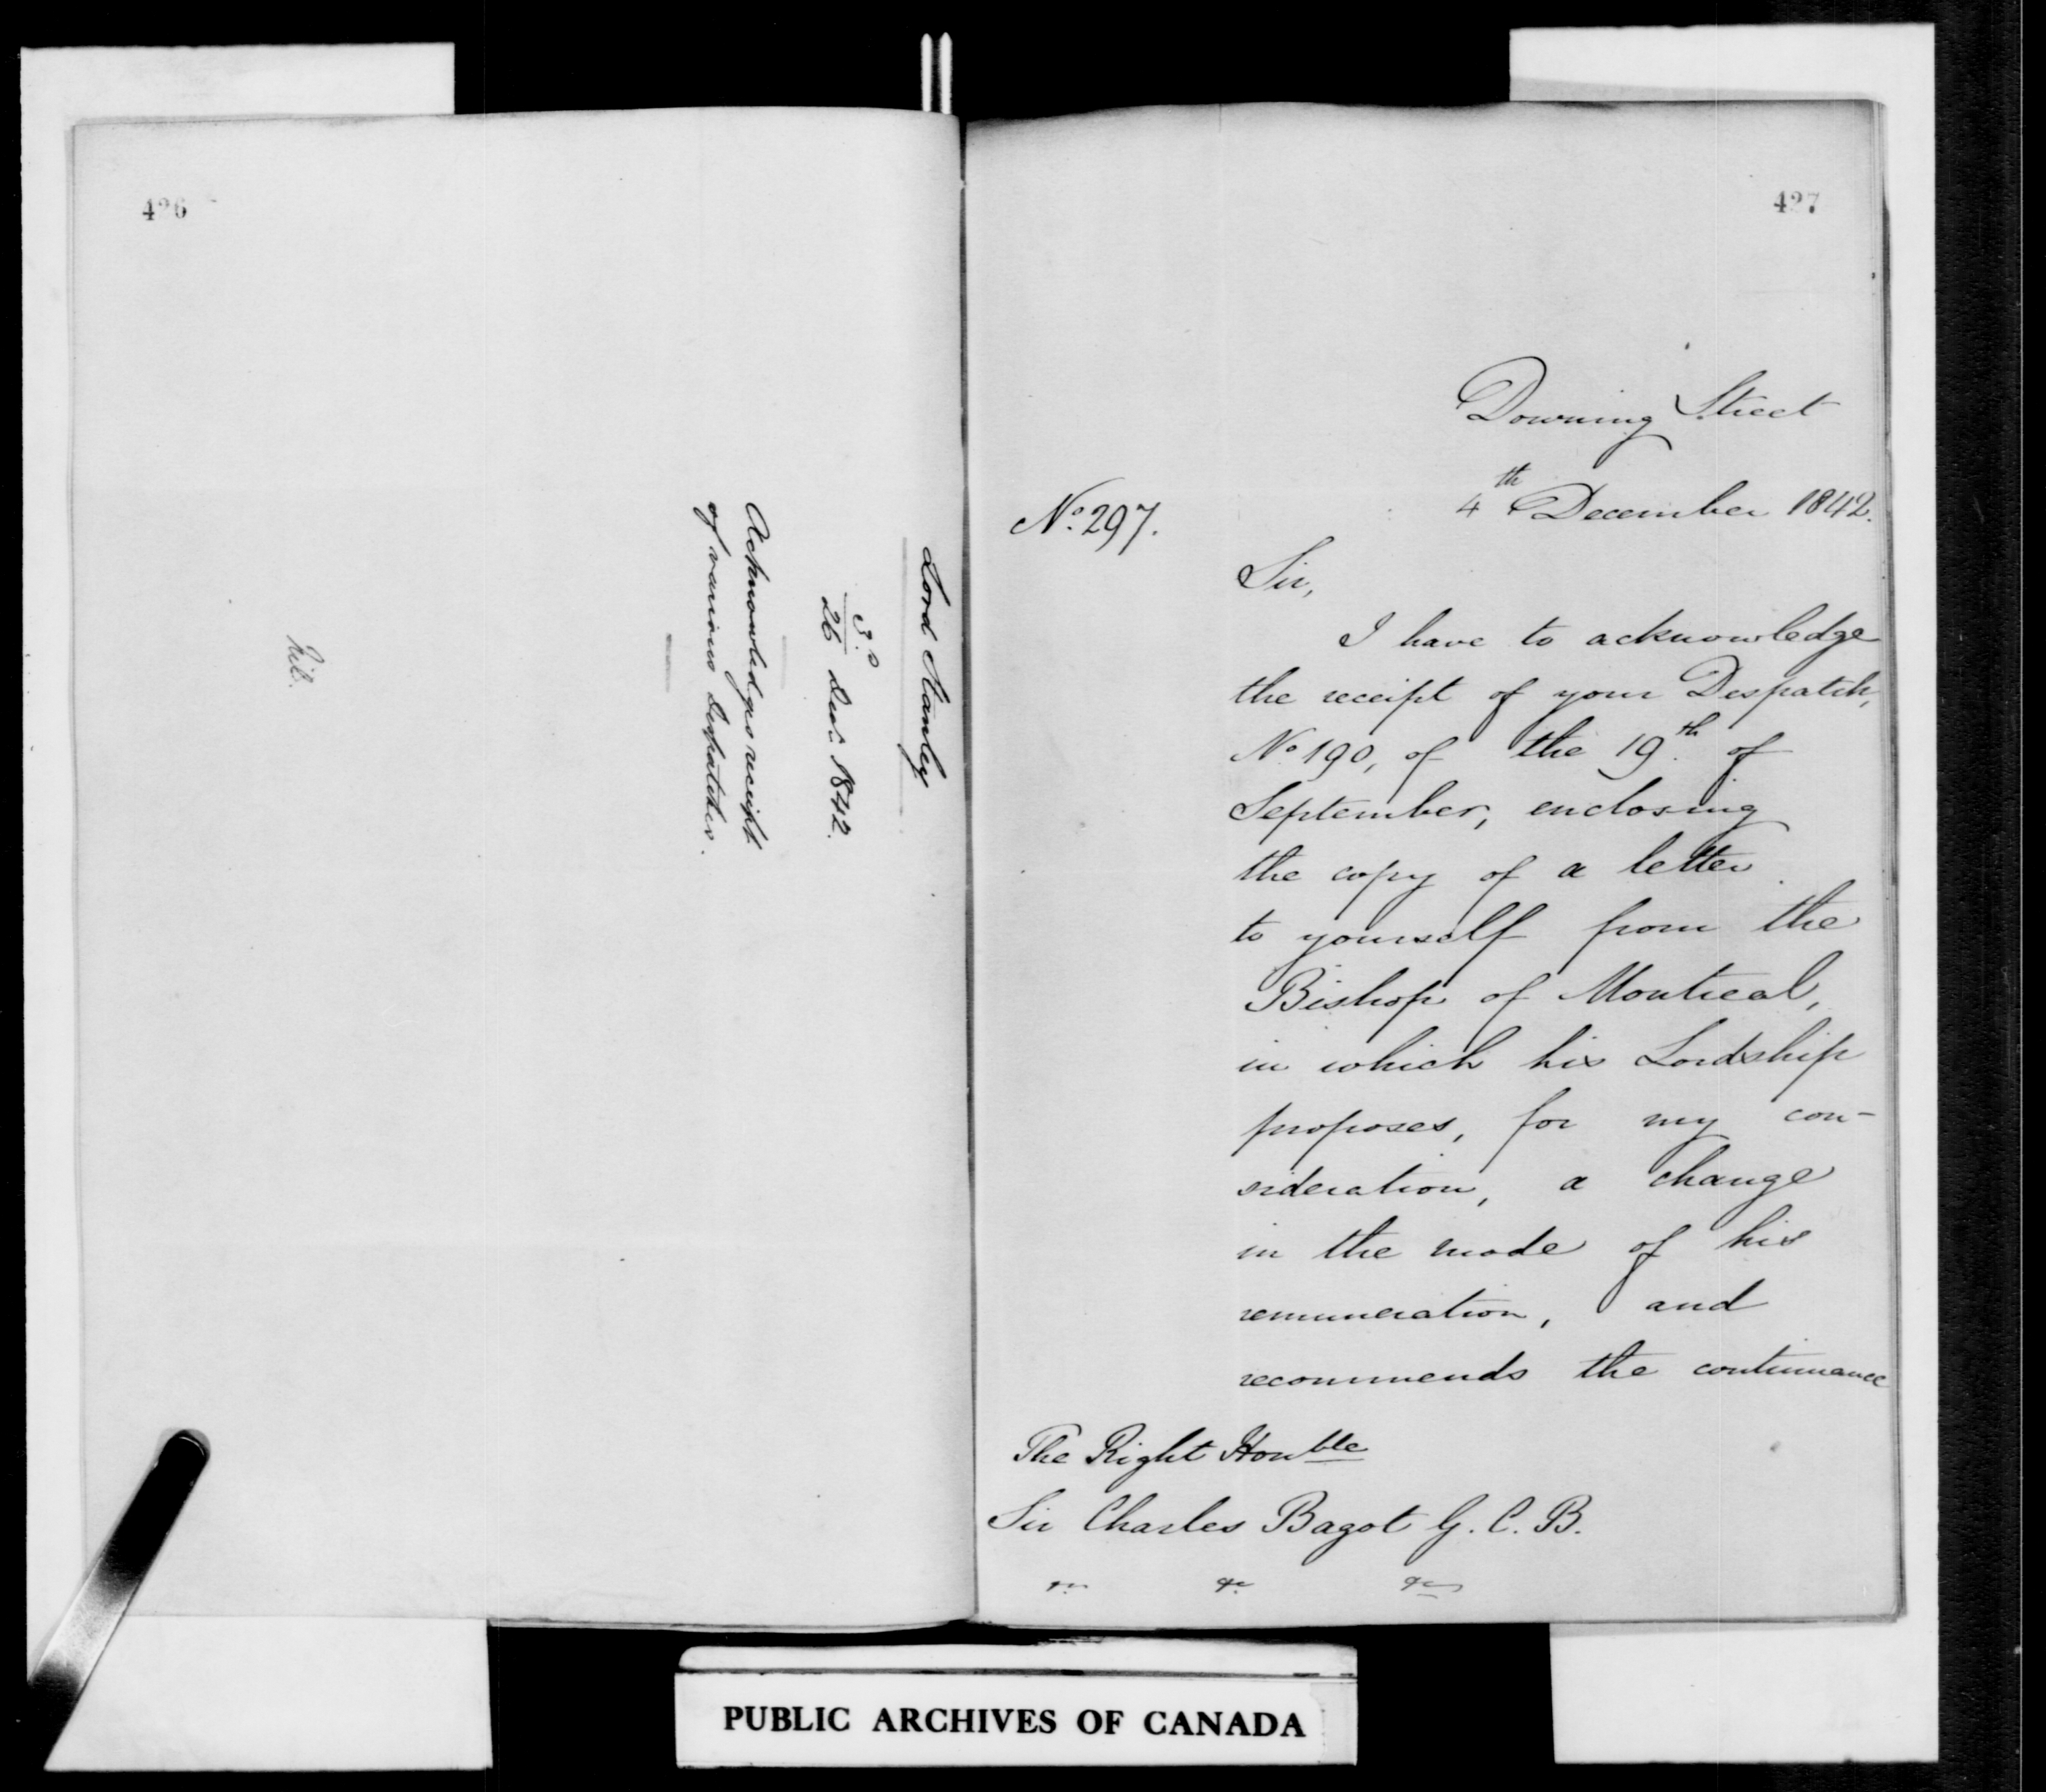 426
Lord Stanley
3.
26 Decr. 1842.
Acknowledges receipt
of various despatches.
Nil.
427
Downing Street
4th December 1842.
No. 297.
Sir,
I have to acknowledge
the receipt of your Despatch,
No. 190, of the 19th. of
September, enclosing
the copy of a letter
to yourself from the
Bishop of Montreal,
in which his Lordship
proposes, for my con-
sideration, a change
in the mode of his
remuneration, and
recommends the continuance
The Right Honble
Sir Charles Bagot G. C. B.
&c &c &c
PUBLIC ARCHIVES OF CANADA